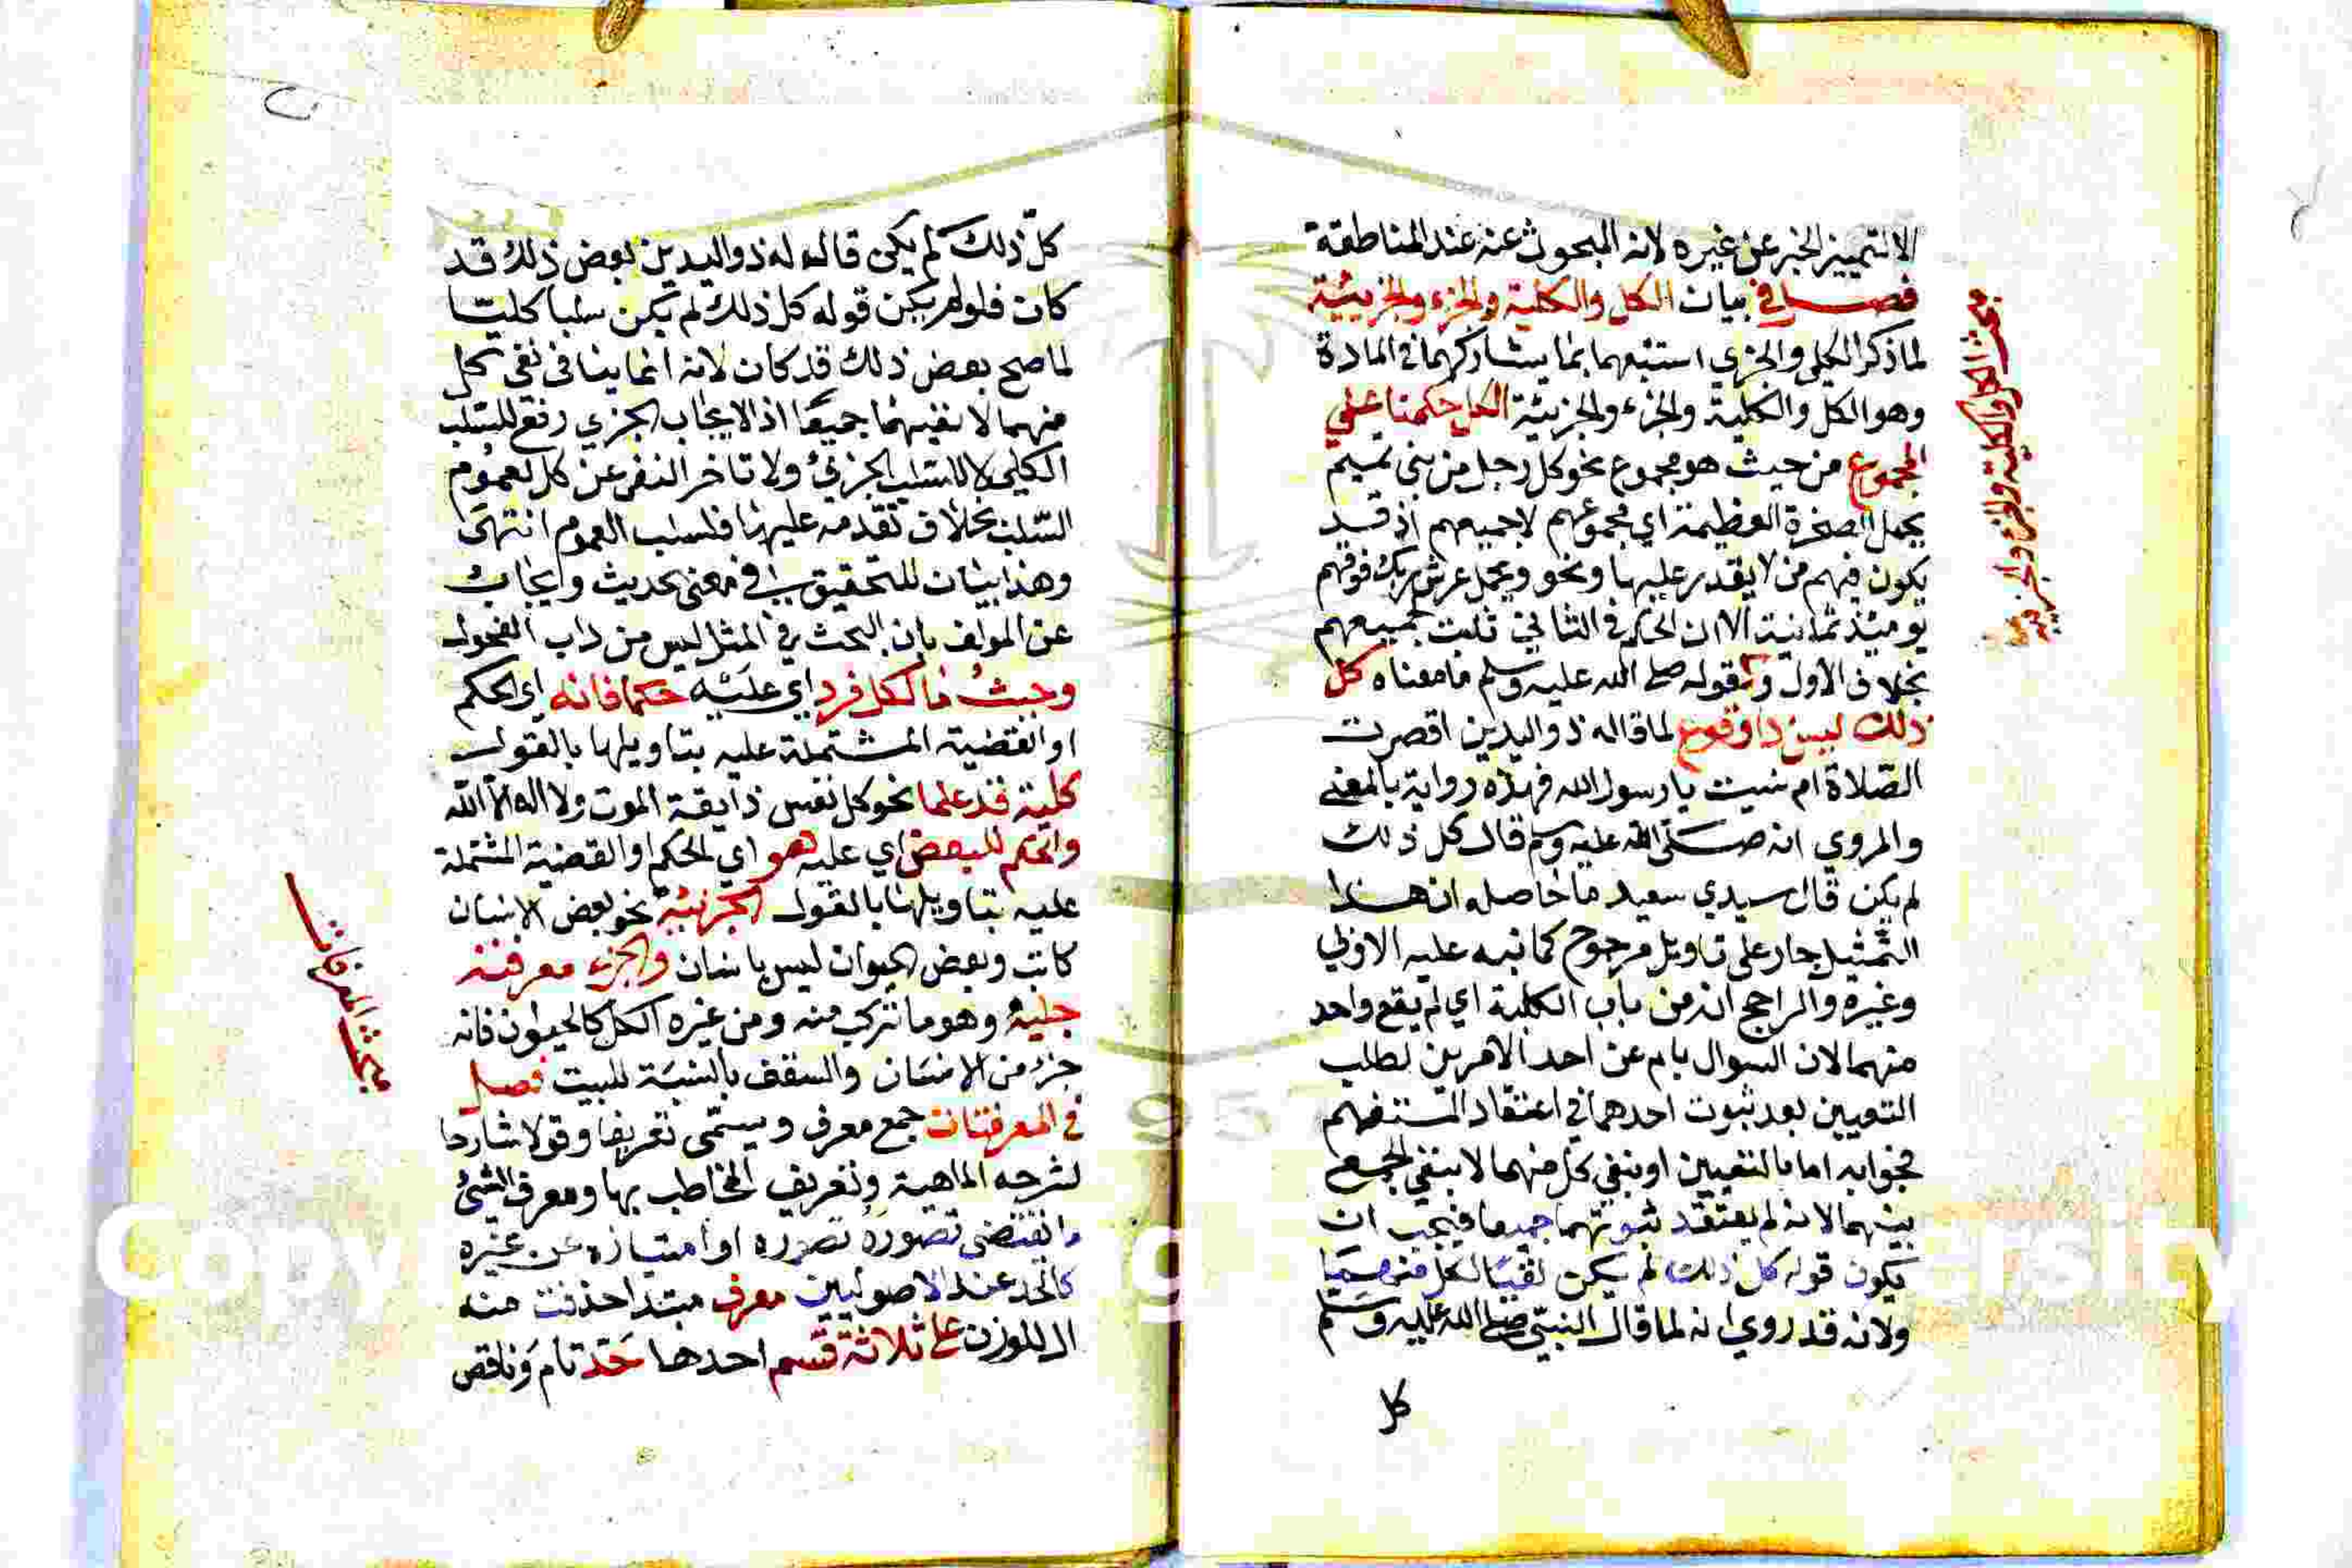 الا لتمييز الخبر عن غيره لانه المبحوث عنه عند المناطقة
فصل في بيان الكل والكلية والجزء والجزيئية
لما ذكر الكلي والجزي استتبعهما بما يشاركهما في المادة
وهو الكل والكلية والجزء والجزيئة الكل حكمنا على
المجموع من حيث هو مجموع نحو كل رجل من بني تميم
يحمل الصخرة العظيمة اي مجموعهم لا جميعهم اذ قد
يكون فيهم من لا يقدر عليها ونحو ويحمل عرش ربك فوقهم
يوميذ ثمانية الا ان الحكم في الثاني ثابت لجميعهم
بخلاف الاول وكقوله صلى الله عليه وسلم ما معناه كل
ذلك ليس ذا وقوع لما قاله ذو اليدين اقصرت
الصلاة ام نسيت يا رسول الله فهذه رواية بالمعنى
والمروي انه صلى الله عليه وسلم قال كل ذلك
لم يكن قال سيدي سعيد ما حاصله ان هذا
التمثيل جار على تاويل مرجوح كما نبه عليه
وغيره والراجح انه من باب الكلية اي لم يقع واحد
منهما لان السوال بام عن احد الامرين لطلب
التعيين بعد ثبوت احدهما في اعتقاد المستفهم
فجوابه اما بالتعيين او بنفي كل منهما لا بنفي الجمع
بينهما لانه لم يعتقد ثبوتهما جميعا فيجب ان
يكون قوله كل ذلك لم يكن نفيا لكل منهما
ولانه قد روي انه لما قال النبي صلى الله عليه وسلم
كل
مبحث الكل والكلية والجزء والجزئية
كل ذلك لم يكن قال له ذو اليدين بعض ذلك قد
كان فلو لم يكن قوله كل ذلك لم يكن سلبا كليا
لما صح بعض ذلك قد كان لانه انما ينافي نفي كل
منهما لا نفيهما جميعا اذ الايجاب الجزي رفع للسلب
الكلي لا للسلب الجزئي ولا تاخر النفي عن كل لعموم
السلب بخلاف تقدمه عليها فلسلب العموم انتهى
وهذا بيان للتحقيق في معنى الحديث ويجاب
عن المولف بان البحث في المثل ليس من داب الفحول
وحيث ما لكل فرد اي عليه حكما فانه اي الحكم
او القضية المشتملة عليه بتاويلها بالقول
كلية قد علما نحو كل نفس ذايقة الموت ولا اله الا الله
والحكم للبعض اي عليه هو اي الحكم او القضية المشتملة
عليه بتاويلها بالقول الجزيية نحو بعض الانسان
كاتب وبعض الحيوان ليس بانسان والجزء معرفته
جلية وهو ما تركب منه ومن غيره الكل كالحيوان فانه
جزء من الانسان والسقف بالنسبة للبيت فصل
في المعرفات جمع معرف ويسمى تعريفا وقولا شارحا
لشرحه الماهية وتعريف المخاطب بها ومعرف الشيء
ما اقتضى تصوره تصوره او امتيازه عن غيره
كالحد عند الاصوليين معرف مبتدا حذفت منه
ال للوزن على ثلاثة قسم احدها حد تام وناقص
مبحث المعرفات